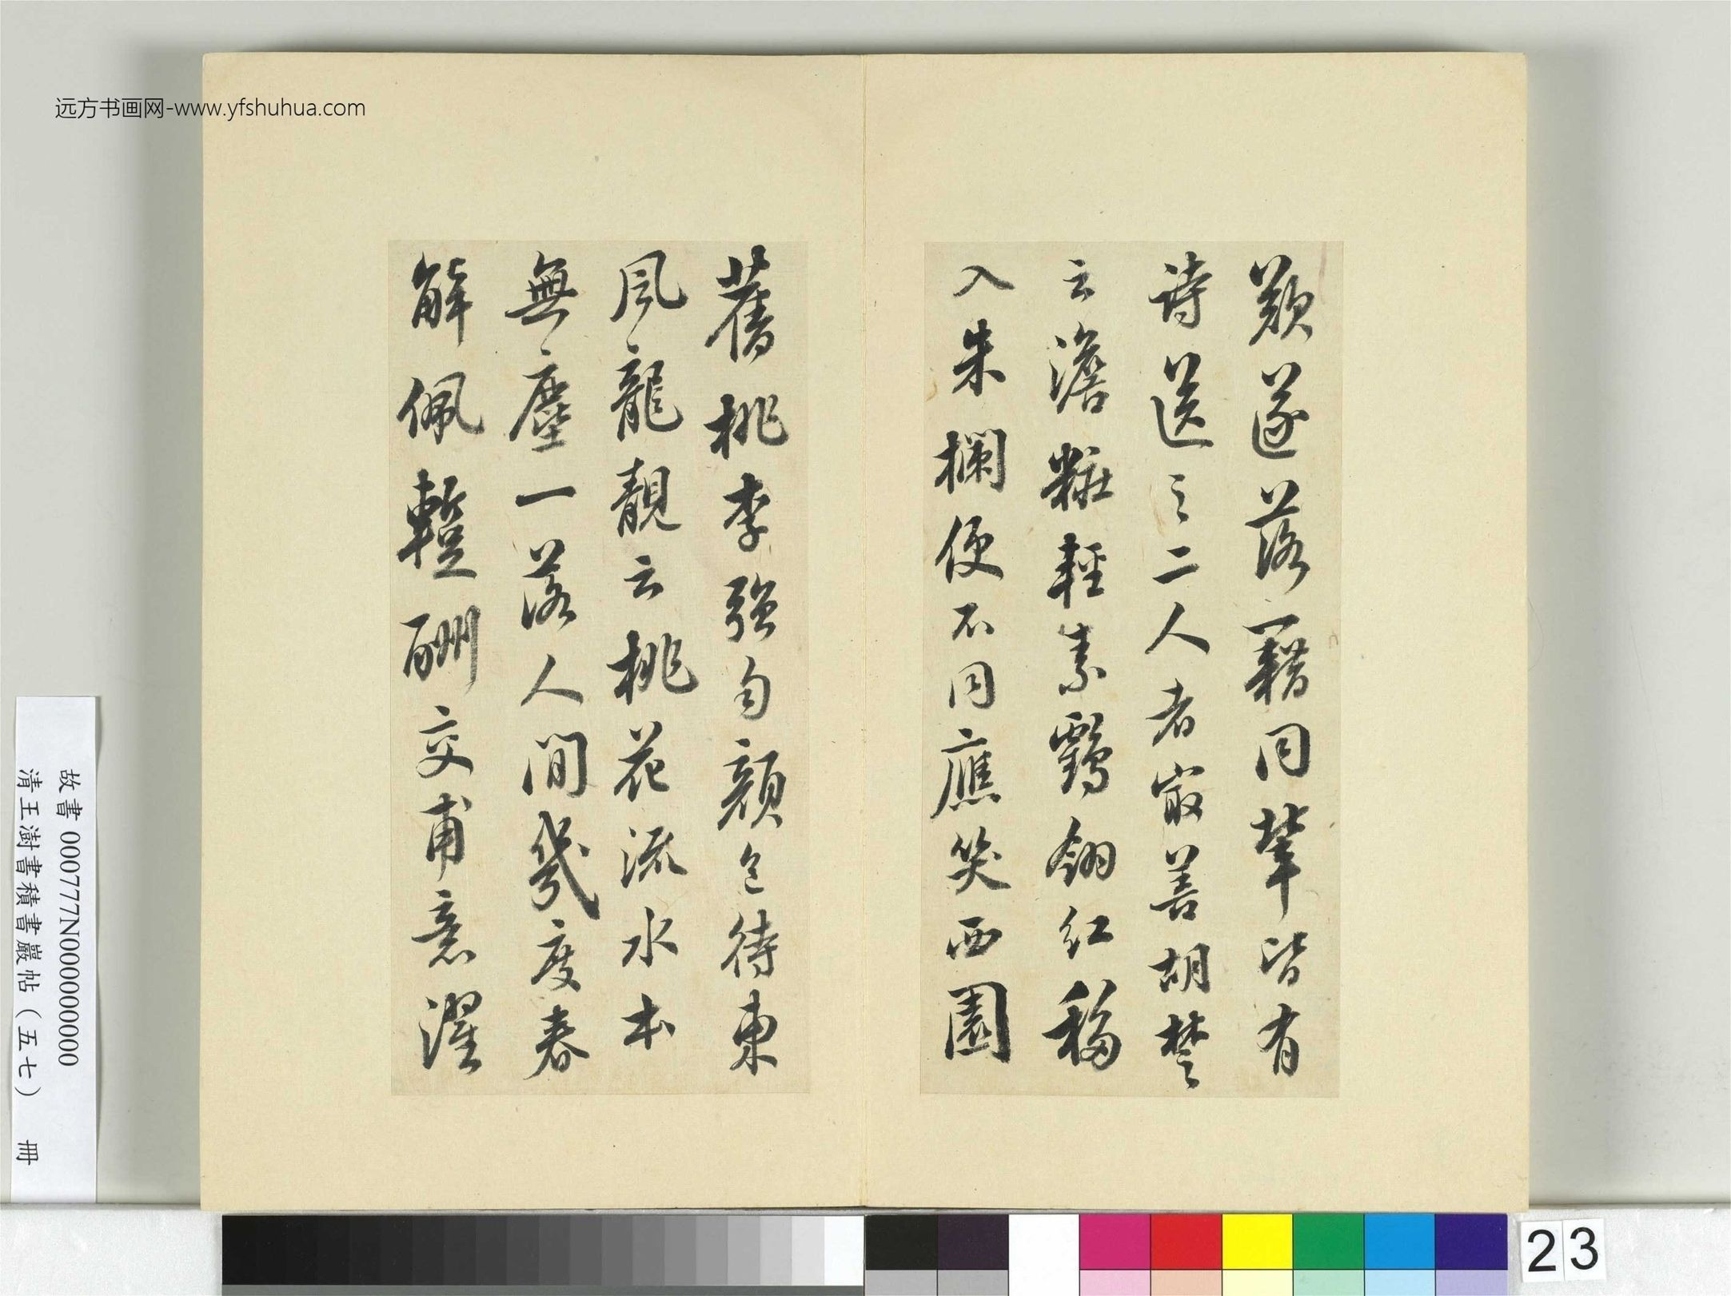 远方书画网-www.yfshuhua.com
歎遂落籍同輩皆有
詩送之二人者最善胡楚
云澹粧輕素鶴翎紅移
入朱欄便不同應笑西園
舊桃李強勻顏色待東
風龍靚云桃花流水本
無塵一落人間幾度春
解佩暫酬交甫意濯
故書 000777N000000000
清王澍書積書巖帖（五七） 冊
23